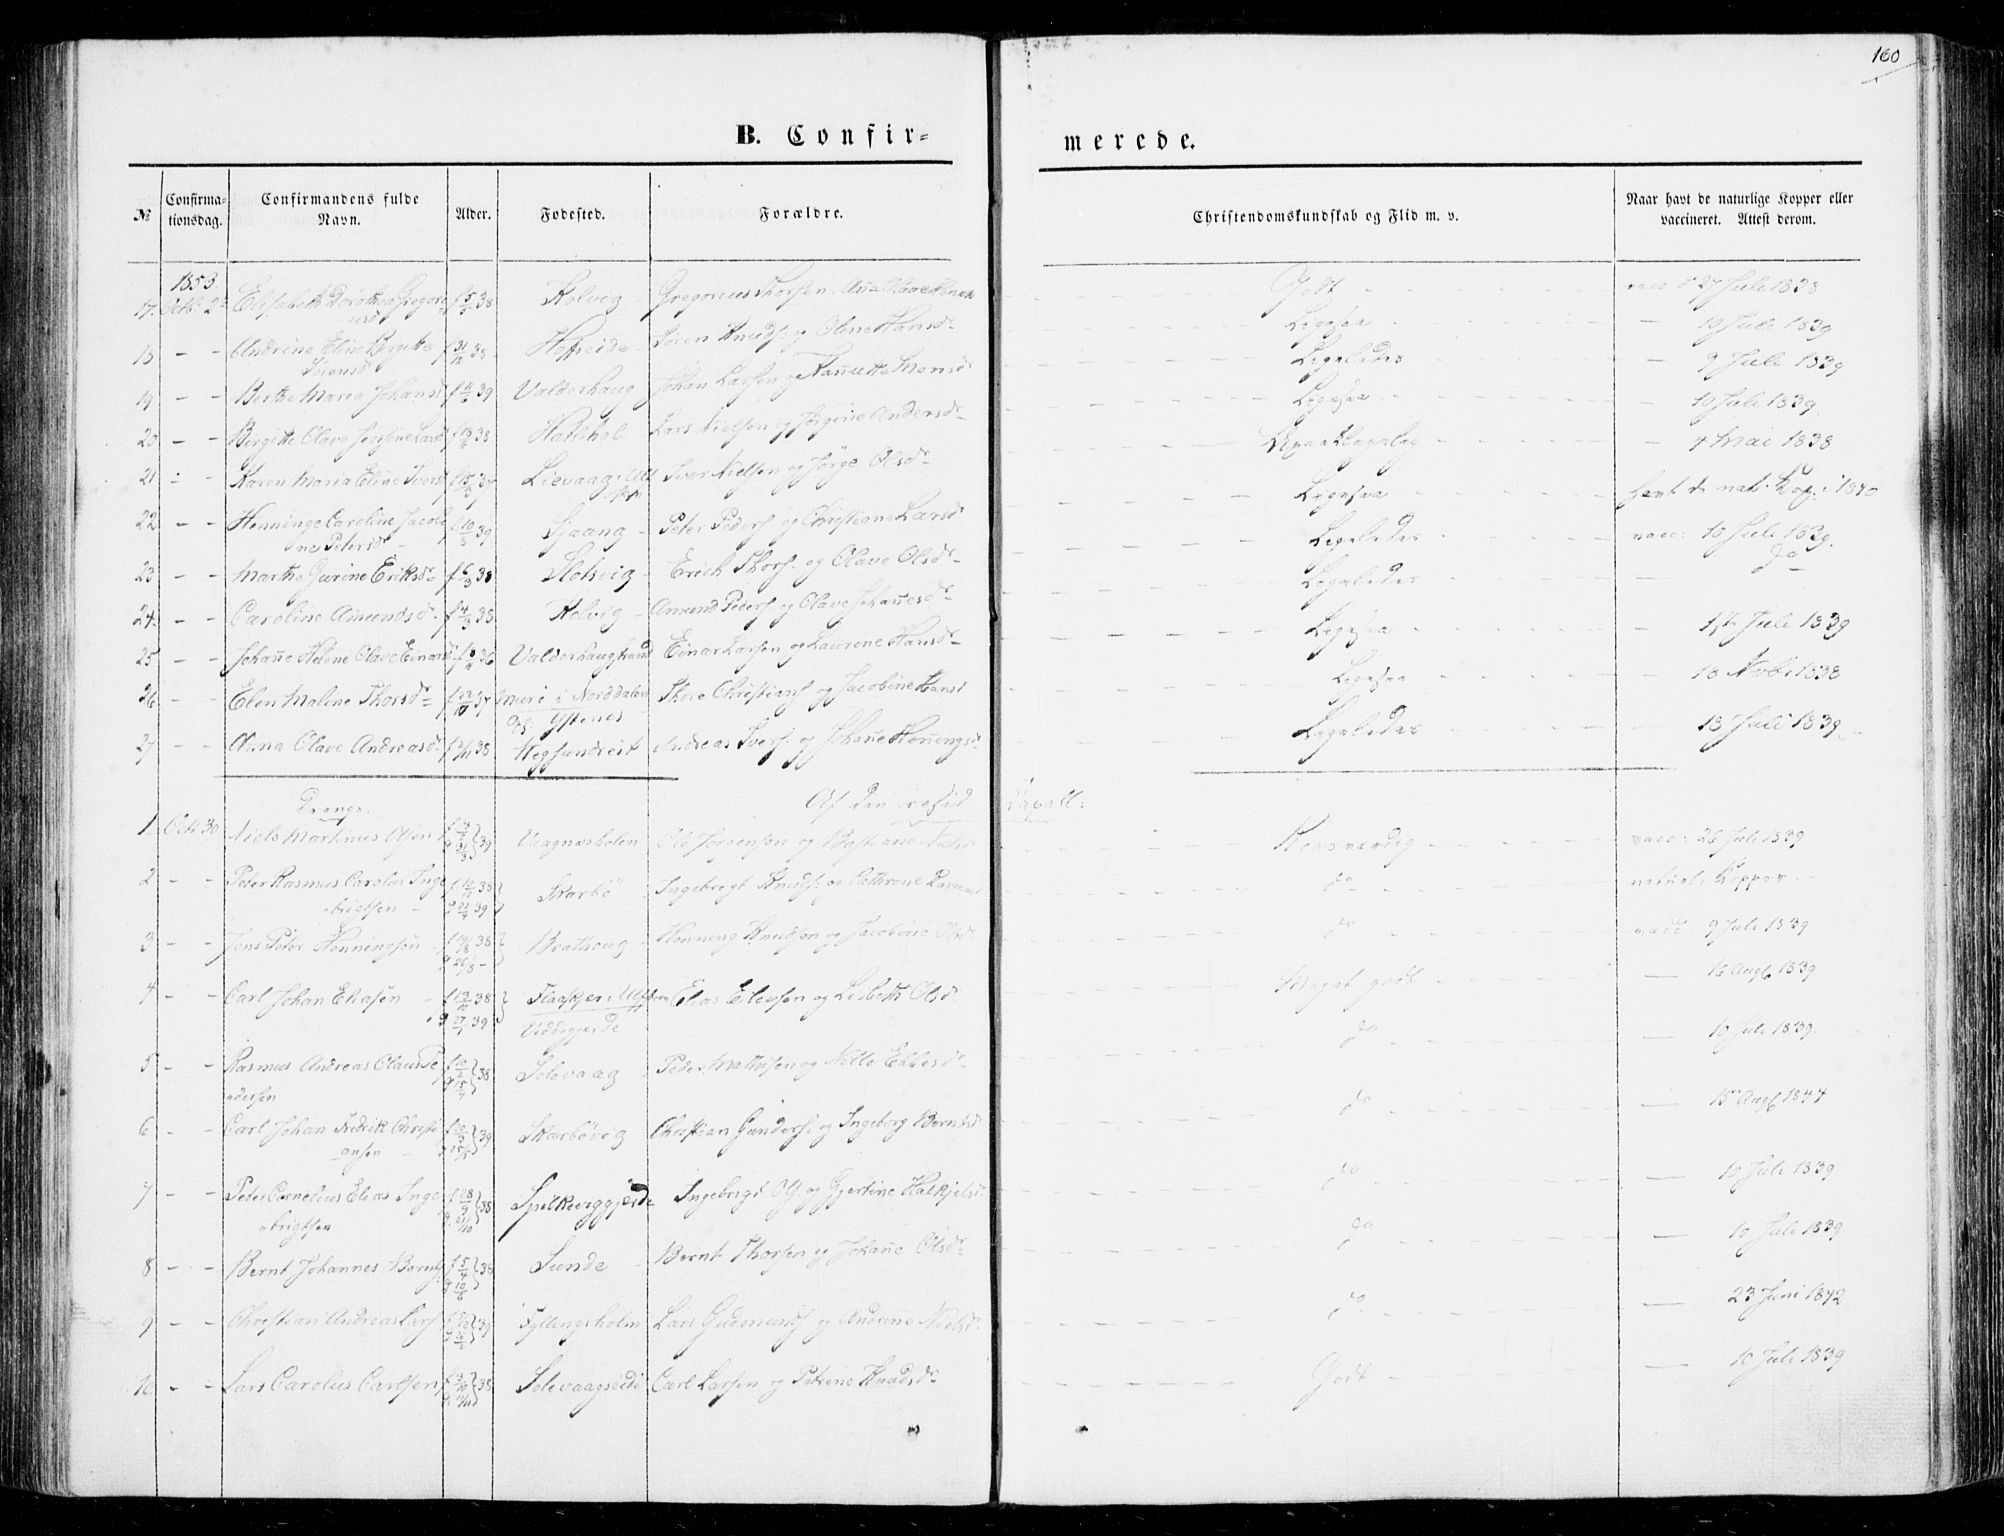 160
B. Confir= merede.
№ Confirma-tionsdag. Confirmandens fulde Navn. Alder. Fødested. Forældre. Christendomskundskab og Flid m. v. Naar havt de naturlige Kopper eller vaccineret. Attest derom.
1853
17. Octb. 2 Elisabeth Dorothea Gregori 38 Kolvig Gregorius Thorsen Godt vacc d 27 Juli 1838
usd
18 - - Andrine Eline Birgitte f 31/12 38 Søren Knuds. og Oline Hansdr Ligesaa - 10 Juli 1839
Sørensd
19 - - Berthe Maria Johansd 39 Valderhaug Johan Larsen Monsd Ligeledes - 9 Juli 1839
20 - - Birgitte Olave Larsd 38 Hatlehol Lars Nielsen og Jørgine Andersd Ligesaa - 10 Juli 1839
21 - Karen Maria Eline Ivers 37 Lievaag i Ulf Iver Nielsen og Jørge Olsd - 4 Mai 1838
sten
22 - - Henninge Caroline Jacobi 39 Gjaang Peter Peders og Christiane Larsd Ligesaa havt d. nat. Kop. i 1840
ne Petersd
23 - - Marthe Gurine Eriksdr f 6/3 38 Slotsvig Erich Thors. og Olave Olsdr Ligeledes vacc: 10 Juli 1839
24 - - Caroline Amundsd f 4/3 38 Kolvig Amund Peders. og Olave Johanesd Ligeledes - do
25 - - Johane Heline Olave Einarsd 36 Valderhaugstrand Einar Larsen og Laurine Hansdr Ligesaa - 1st Juli 1839
26 - - Elen Maline Thorsdr 37 Muri i Norddalen Thore Christians og Jacobine Hansd Ligesaa - 18 Novbr 1838
Ystenes
27 - - Anna Olave Andreasd 38 Vegsundreit Andreas Ivers. og Johane Henningsd Ligeledes - 18 Juli 1839
Drenge. Af den resid. Capell:
1 Octb 30 Niels Martinus Olsen 39 Vaagnæsholen Ole Jørgensen og Bastiane Nielsd vacc: 26 Juli 1839
2 - - Peter Rasmus Carolus Inge f 38 Skarbö Ingebrigt Knuds. og Cathrine Rasmusd do naturl: Kopper
brigtsen 39
3 - - Jens Peter Henningsen 38 Brathoug Henning Knudsen og Jacobine Olsd do vacc: 9 Juli 1839
4 - - Carl Johan Eliasen 38 Flaaskjer i Ulfsten Elias Eilevsen og Lisbeth Olsd Meget godt - 16 Augt 1839
39 Uddigjerde
5 - - Rasmus Andreas Olaus Pe 38 Solevaag Peder Mathisen og Nille Ebbesdr do 10 Juli 1839
edersen
6 - - Carl Johan Fredrik Christi 39 Skarbövig Christian Gunders. og Ingeborg Berntsd do - 15 Augt 1844
ansen
7 - - Peter Cornelius Elias Inge f 28/9 38 Spilkeviggjerde Ingebrigt Ols. og Gjertine Halkjelsd do 10 Juli 1839
brigtsen
8 - - Bernt Johannes Bernts f 5/4 38 Sunde Bernt Thorsen og Johane Olsdr do - 10 Juli 1839
9 - - Christian Andreas Lars 39 Fyllingsholm Lars Gudmunds og Andrine Nielsdr do 23 Juni 1842
10 - - Lars Carolus Carlsen 38 Solevaagseide Carl Larsen og Petrine Knudsdr Godt 10 Juli 1839